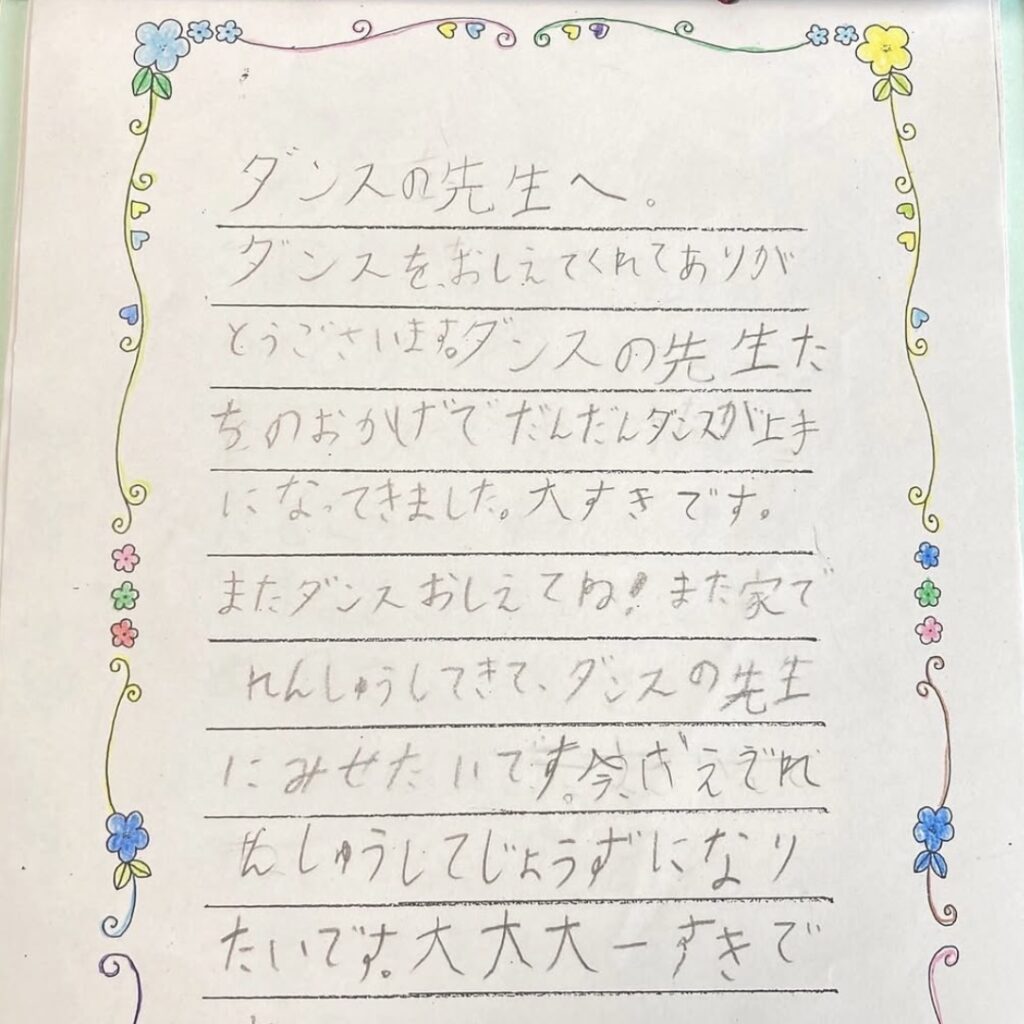 ダンスの先生へ。
ダンスを、おしえてくれてありが
とうございます。ダンスの先生た
ちのおかげでだんだんダンスが上手
になってきました。大すきです。
またダンスおしえてね!また家で
れんしゅうしてきて、ダンスの先生
にみせたいです。今、
んしゅうしてじょうずになり
たいです。大大大一すきで